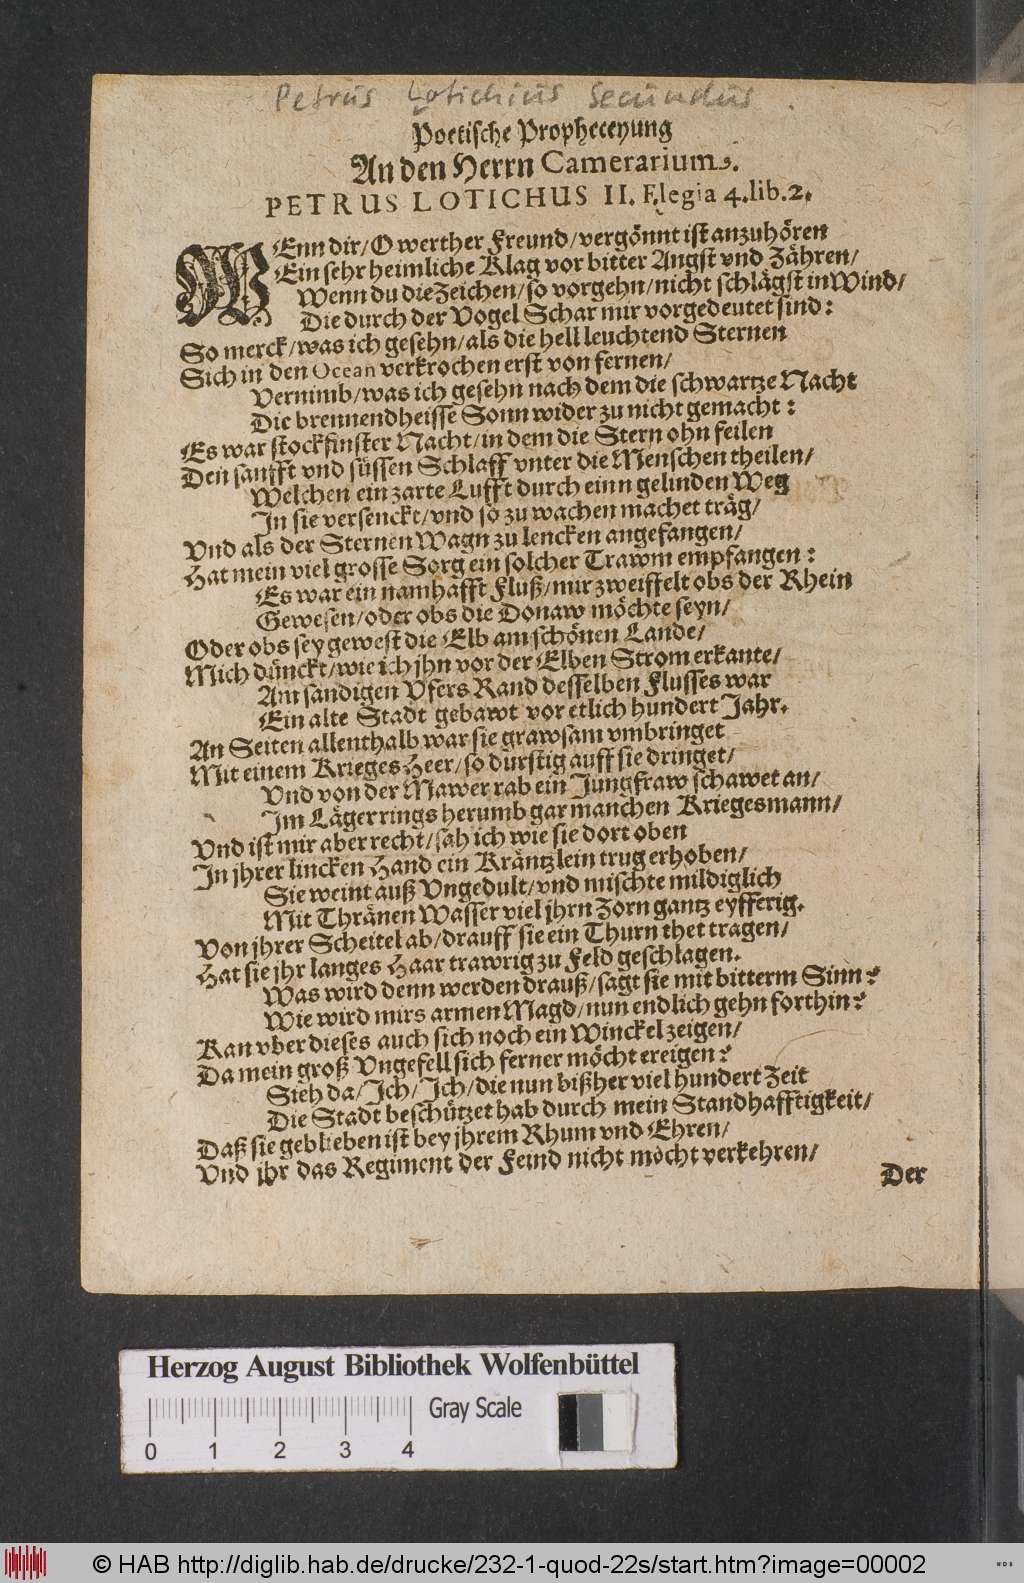 Petrus Lotichius Secundus.
Poetische Propheceyung
An den Herrn Camerarium.
PETRUS LOTICHUS II. Elegia 4. lib. 2.
WEnn dir/ O werther Freund/ vergönnt ist anzuhören
Ein sehr heimliche Klag vor bitter Angst vnd Zähren/
Wenn du die Zeichen/ so vorgehn/ nicht schlägst in Wind/
Die durch der Vogel Schar mir vorgedeutet sind:
So merck/ was ich gesehn/ als die hell leuchtend Sternen
Sich in den Ocean verkrochen erst von fernen/
Vernimb/ was ich gesehn nach dem die schwartze Nacht
Die brennendheisse Sonn wider zu nicht gemacht:
Es war stockfinster Nacht/ in dem die Stern ohn feilen
Den sanfft vnd süssen Schlaff vnter die Menschen theilen/
Welchen ein zarte Lufft durch einn gelinden Weg
In sie versenckt/ vnd so zu wachen machet träg/
Vnd als der Sternen Wagn zu lencken angefangen/
Hat mein viel grosse Sorg ein solcher Trawm empfangen:
Es war ein namhafft Fluß/ mir zweiffelt obs der Rhein
Gewesen/ oder obs die Donaw möchte seyn/
Oder obs sey gewest die Elb am schönen Lande/
Mich dünckt/ wie ich jhn vor der Elben Strom erkante/
Am sandigen Vfers Rand desselben Flusses war
Ein alte Stadt gebawt vor etlich hundert Jahr.
An Seiten allenthalb war sie grawsam vmbringet
Mit einem Krieges Heer/ so durstig auff sie dringet/
Vnd von der Mawer rab ein Jungfraw schawet an/
Im Läger rings herumb gar manchen Kriegesmann/
Vnd ist mir aber recht/ sah ich wie sie dort oben
In jhrer lincken Hand ein Kräntzlein trug erhoben/
Sie weint auß Vngedult/ vnd mischte mildiglich
Mit Thränen Wasser viel jhrn Zorn gantz eyfferig.
Von jhrer Scheitel ab/ drauff sie ein Thurn thet tragen/
Hat sie jhr langes Haar trawrig zu Feld geschlagen.
Was wird denn werden drauß/ sagt sie mit bitterm Sinn?
Wie wird mirs armen Magd/ nun endlich gehn forthin?
Kan vber dieses auch sich noch ein Winckel zeigen/
Da mein groß Vngefell sich ferner möcht ereigen?
Sieh da/ Ich/ Ich/ die nun bißher viel hundert Zeit
Die Stadt beschützet hab durch mein Standhafftigkeit/
Daß sie geblieben ist bey jhrem Rhum vnd Ehren/
Vnd jhr das Regiment der Feind nicht möcht verkehren/
Der
Herzog August Bibliothek Wolfenbüttel
Gray Scale
0 1 2 3 4
© HAB http://diglib.hab.de/drucke/232-1-quod-22s/start.htm?image=00002